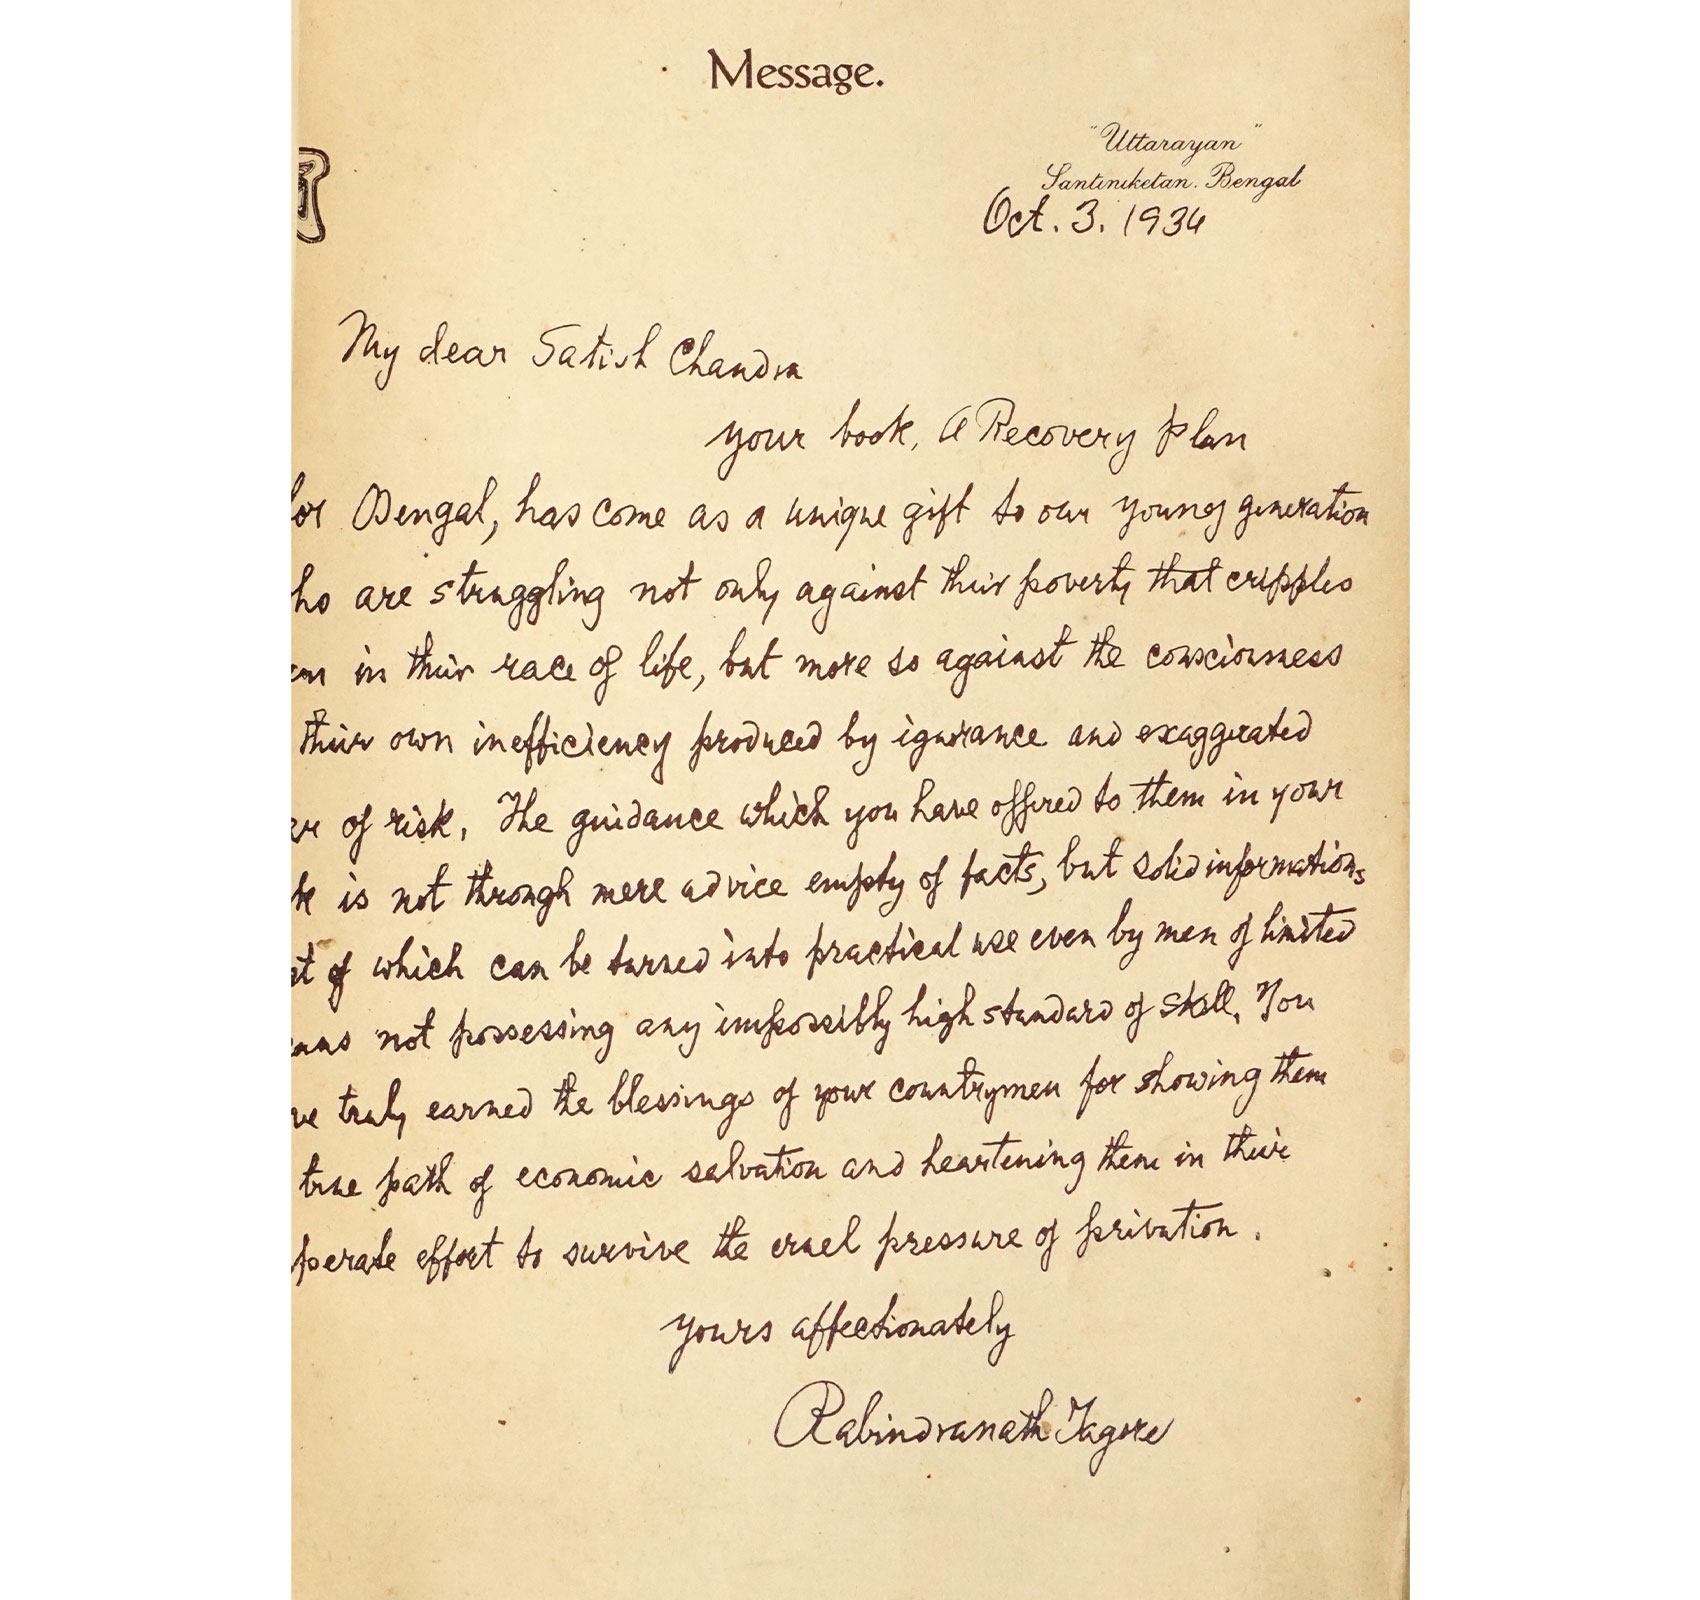 Message.
"Uttarayan"
Santiniketan. Bengal
Oct. 3. 1934
My dear Satish Chandra
your book, A Recovery Plan
for Bengal, has come as a unique gift to our young generation
ho are struggling not only against their poverty that cripples
em in their race of life, but more so against the consciousness
their own inefficiency produced by ignorance and exaggerated
ar of risk. The guidance which you have offered to them in your
k is not through mere advice empty of facts, but solid informations
st of which can be turned into practical use even by men of limited
eans not possessing any impossibly high standard of skill. You
ve truly earned the blessings of your countrymen for showing them
true path of economic salvation and heartening them in their
perate effort to survive the cruel pressure of privation.
yours affectionately
Rabindranath Tagore